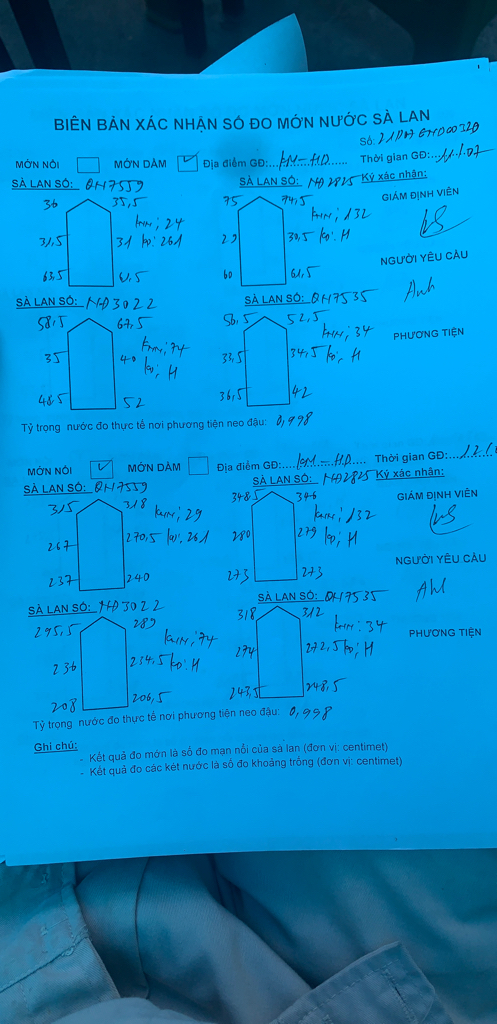 BIÊN BẢN XÁC NHẬN SỐ ĐO MỚN NƯỚC SÀ LAN
Số:
MỚN NỔI MỚN DẰM Địa điểm GĐ:... KM-HD ..... Thời gian GĐ:
SÀ LAN SỐ: QN7559 SÀ LAN SỐ: NĐ2825 Ký xác nhận:
36 35,5 75 74,5 GIÁM ĐỊNH VIÊN
KNN; 24 KNN; 132
31,5 31 KĐ: 261 29 30,5 KĐ: H
63,5 61,5 60 61,5 NGƯỜI YÊU CẦU
Anh
SÀ LAN SỐ: NĐ3022 SÀ LAN SỐ: QN7535
58,5 67,5 56,5 52,5
KNN; 74 KNN; 34 PHƯƠNG TIỆN
35 40 KĐ; H 33,5 34,5 KĐ; H
48,5 52 36,5 42
Tỷ trọng nước đo thực tế nơi phương tiện neo đậu: 0,998
MỚN NỔI MỚN DẰM Địa điểm GĐ:.... KM-HD .... Thời gian GĐ:
SÀ LAN SỐ: QN7559 SÀ LAN SỐ: NĐ2825 Ký xác nhận:
315 318 348,5 346 GIÁM ĐỊNH VIÊN
KNN; 29 KNN; 132
267 270,5 KĐ: 261 280 279 KĐ; H
237 240 273 273 NGƯỜI YÊU CẦU
Anh
SÀ LAN SỐ: NĐ3022 SÀ LAN SỐ: QN7535
295,5 289 318 312
KNN; 74 KNN; 34 PHƯƠNG TIỆN
236 234,5 KĐ: H 274 272,5 KĐ; H
208 206,5 243,5 248,5
Tỷ trọng nước đo thực tế nơi phương tiện neo đậu: 0,998
Ghi chú:
- Kết quả đo mớn là số đo mạn nổi của sà lan (đơn vị: centimet)
- Kết quả đo các két nước là số đo khoảng trống (đơn vị: centimet)